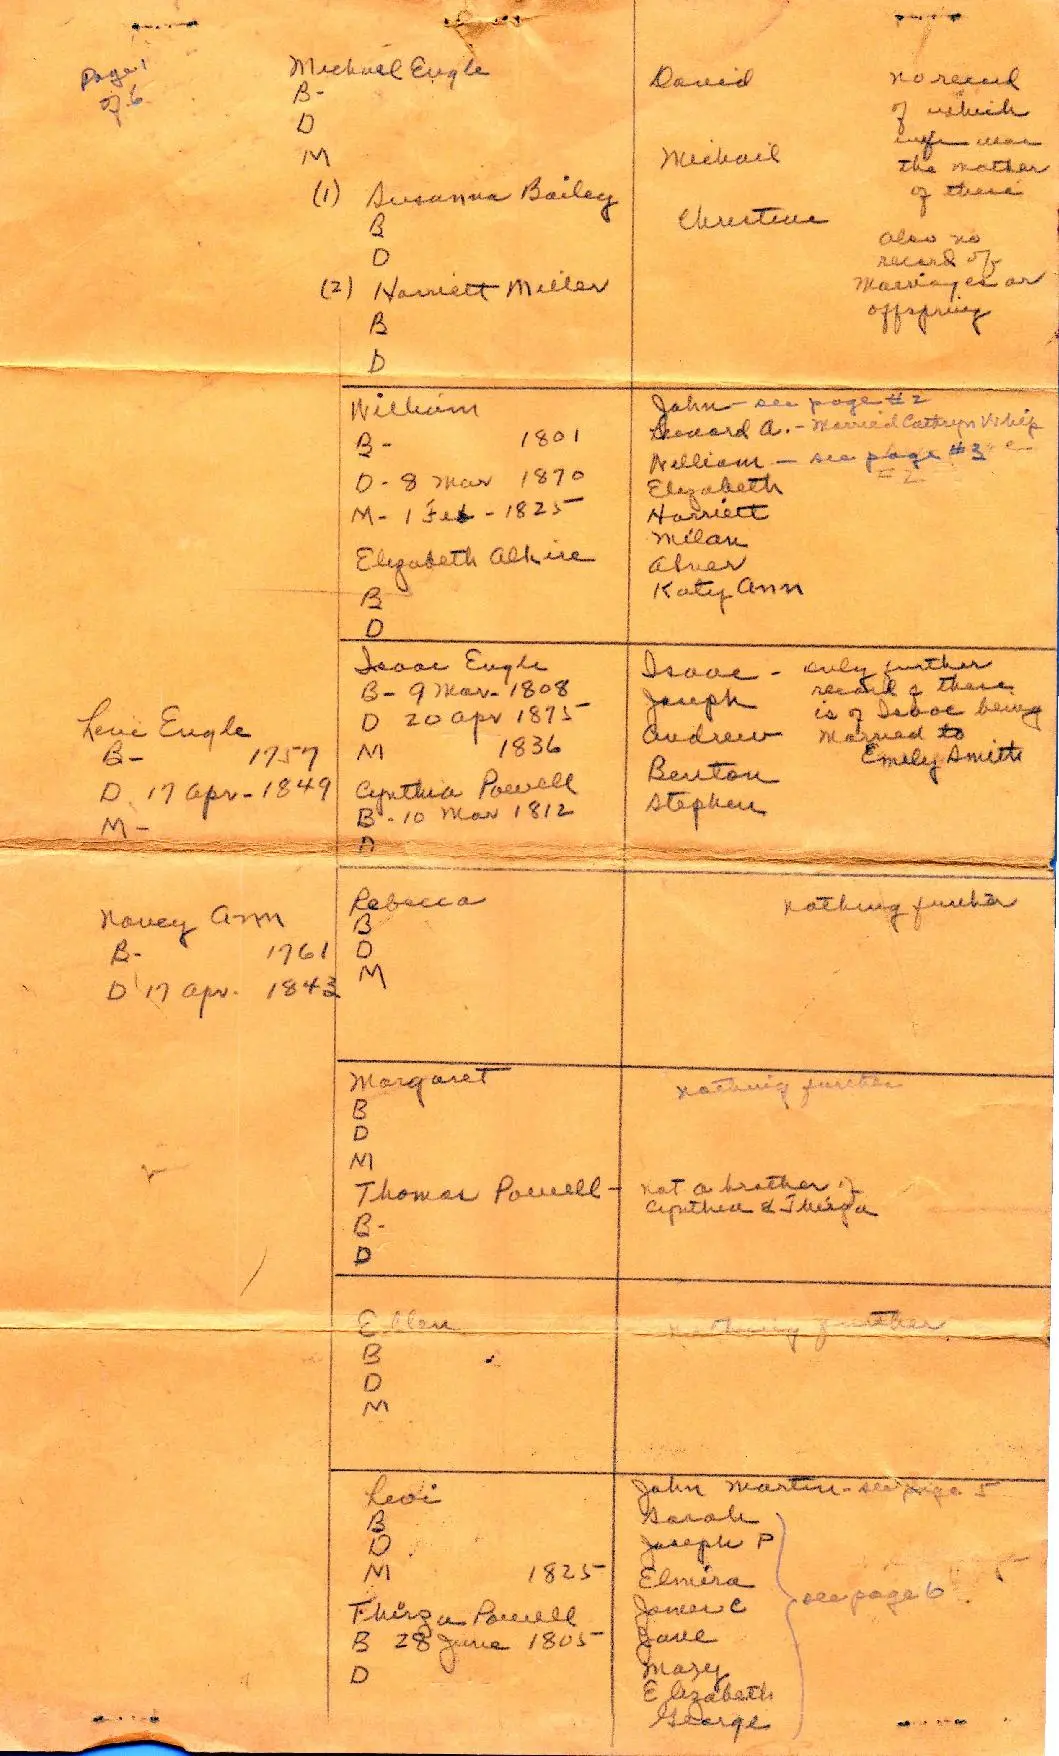 Page 1
of 6
Michael Eugle
B-
D
M
(1) Susanna Bailey
B
D
(2) Harriett Miller
B
D
David
Michail
Christine
no record
of which
wife was
the mother
of these
also no
record of
marriages or
offspring
William
B- 1801
D- 8 Mar 1870
M- 1 Feb - 1825
Elizabeth Alkire
B
D
John - see page #2
Leonard A. - Married Cathryn Whip
William - see page #3
= 2
Elizabeth
Harriett
Milan
Abner
Katy Ann
Levi Eugle
B- 1757
D. 17 Apr - 1849
M-
Nancy Ann
B- 1761
D 17 Apr. 1843
Isaac Eugle
B- 9 Mar- 1808
D 20 Apr 1875
M 1836
Cynthia Powell
B - 10 Mar 1812
D
Isaac - only further
Joseph record of these
Andrew is of Isaac being
Benton married to
Stephen Emily Smith
Rebecca
B
D
M
nothing further
Margaret
B
D
M
Thomas Powell - not a brother of
Cynthia & Thirza
B-
D
nothing further
Ellen
B
D
M
nothing further
Levi
B
D
M 1825
Thirza Powell
B 28 June 1805
D
John Martin - see page 5
Sarah
Joseph P
Elmira
James C
Jane
Mary
Elizabeth
George
see page 6
5